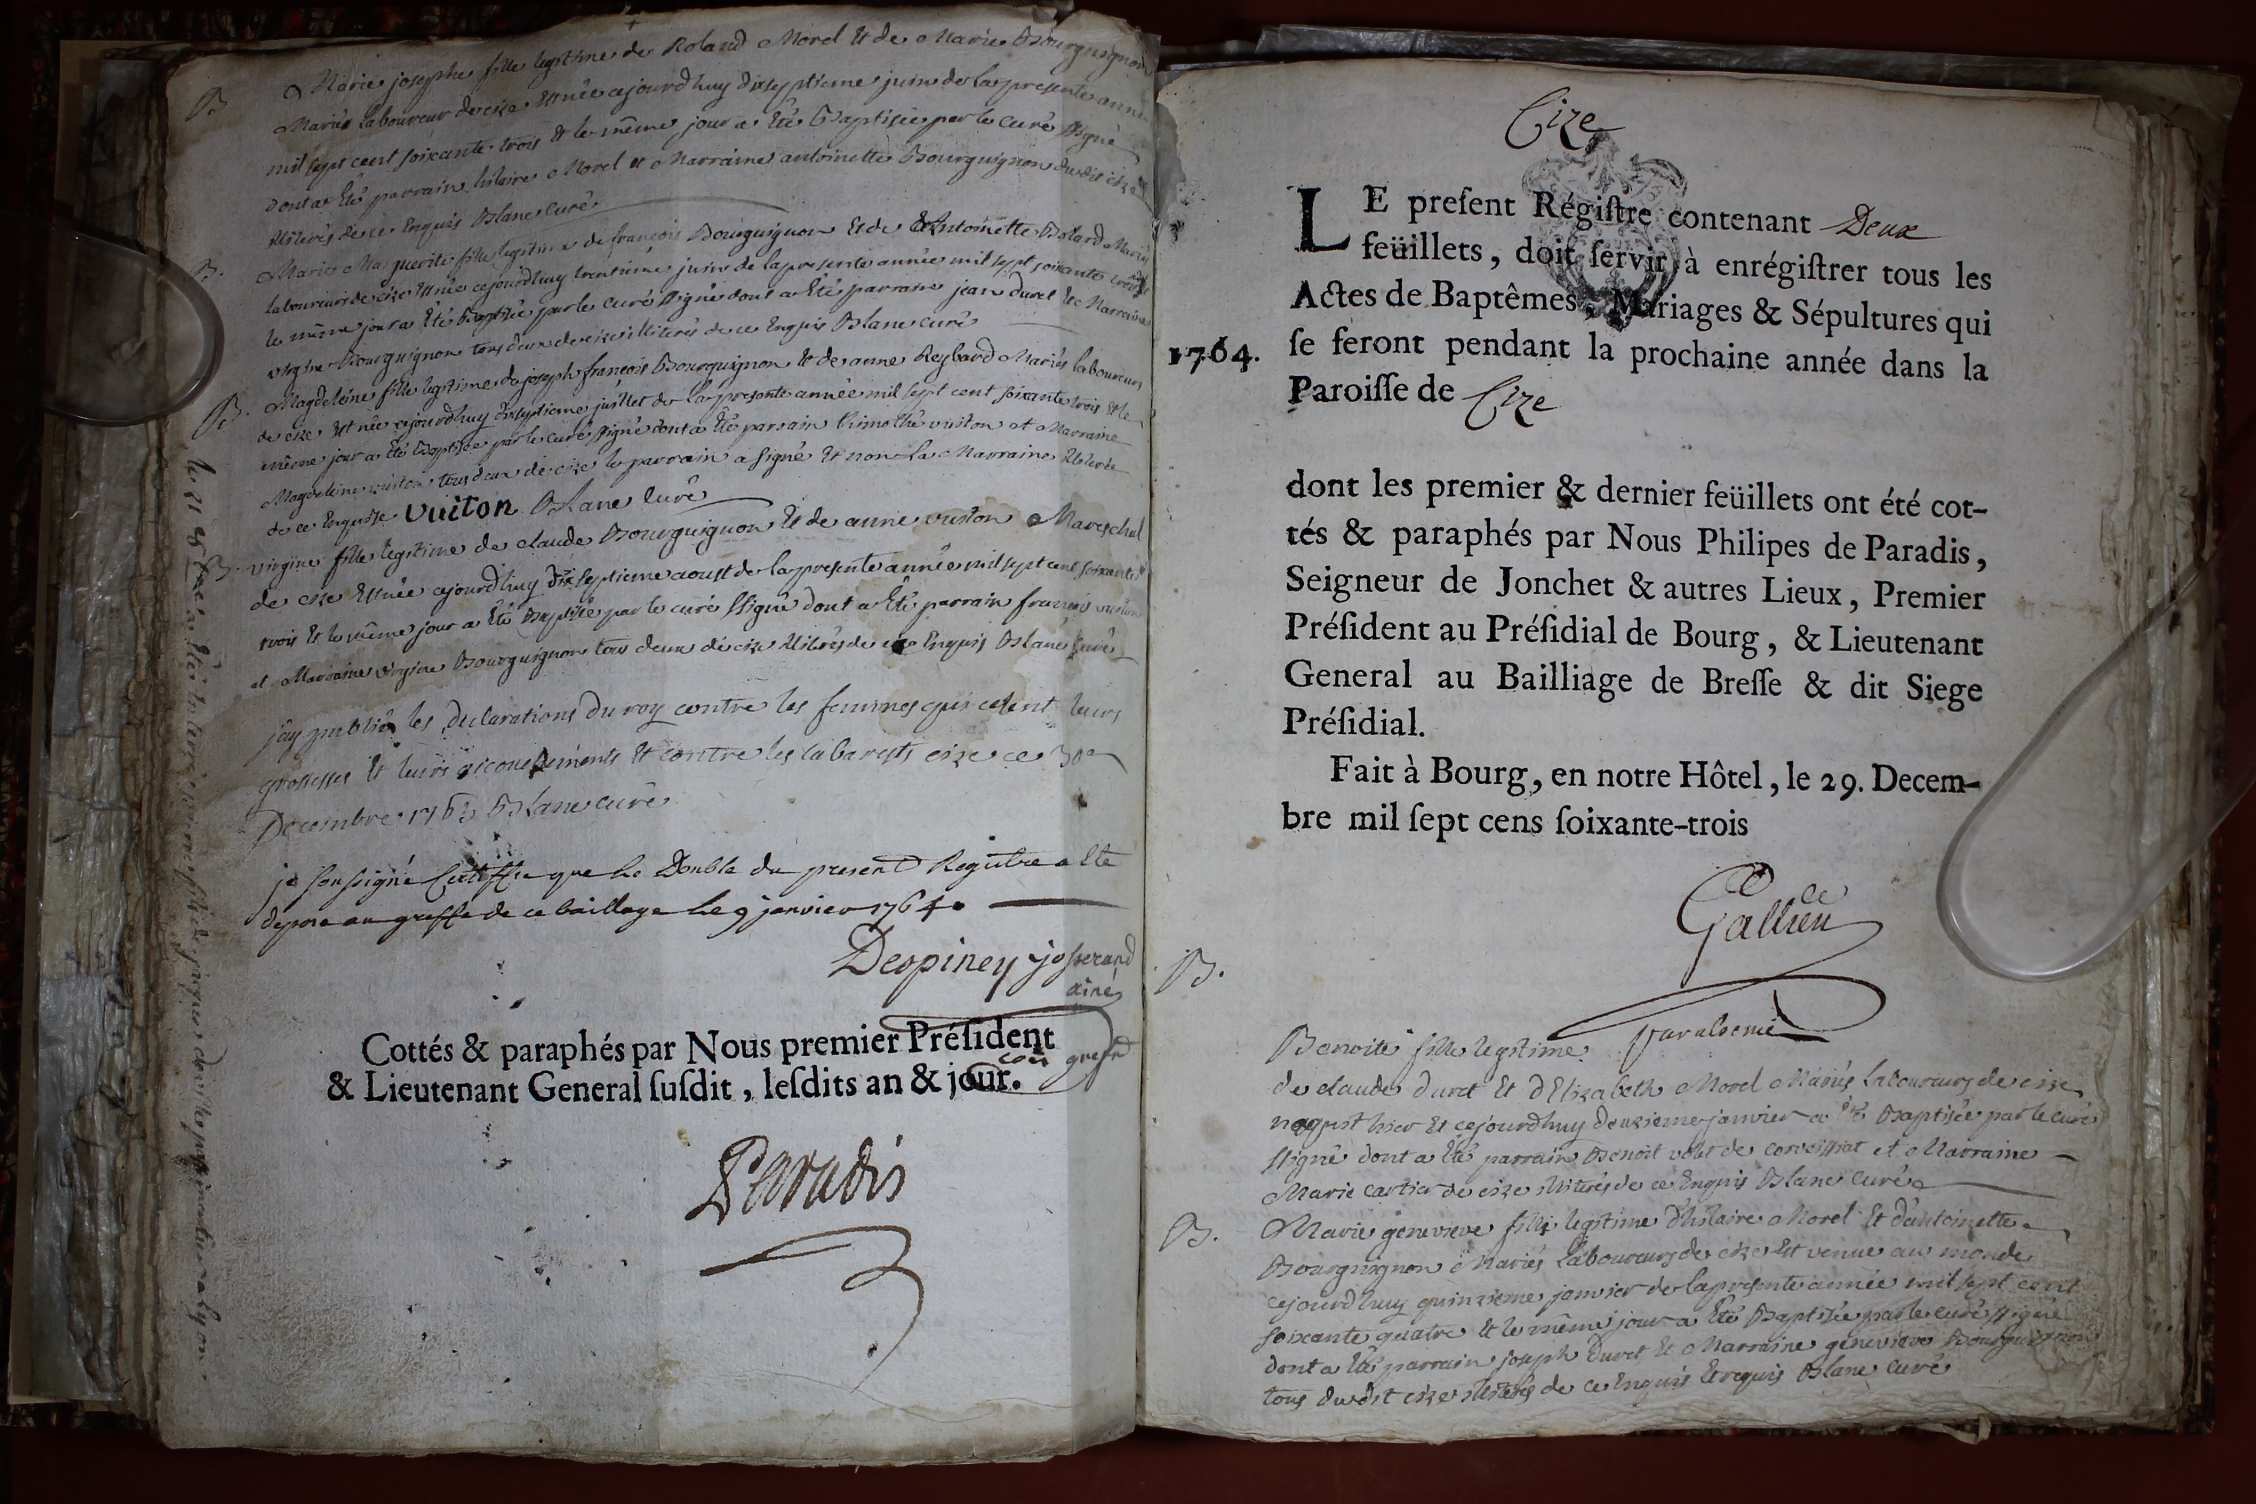 B
Marie josephe fille legitime de Roland Morel et de Marie Bourguignon
Mariés Laboureur de cize est née cejourdhuy dixseptieme juin de la presente année
mil sept cent soixante trois et le même jour a été Baptisée par le curé ssigné
dont a été parrain hilaire Morel et Marraine antoinette Bourguignon dudit cize
illiterés de ce Enquis Blanc curé
B.
Marie Marguerite fille legitime de françois Bourguignon et de Antoinette Bollard Mariés
laboureurs de cize est née cejourdhuy trentième juin de la presente année mil sept soixante trois
le même jour a été Baptisée par le curé ssigné dont a été parrain jean duret et Marraine
virgine Bourguignon tous deux de cize illiterés de ce Enquis Blanc curé
B.
Magdeleine fille legitime de joseph françois Bourguignon et de anne Reybard Mariés laboureurs
de cize est née cejourdhuy dixseptieme juillet de la presente année mil sept cent soixante trois et le
même jour a été Baptisée par le curé ssigné dont a été parrain thimothé vuiton et Marraine
Magdeleine vuiton tous deux de cize le parrain a signé et non la Marraine illiterée
de ce Enquise vuiton Blanc curé
B.
virgine fille legitime de claude Bourguignon et de anne vuiton Mareschal
de cize est née cejourdhuy dix septieme aoust de la presente année mil sept cent soixante
trois et le même jour a été Baptisée par le curé ssigné dont a été parrain françois vuiton
et Marraine virgine Bourguignon tous deux de cize illiterés de ce Enquis Blanc curé
jay publié les declarations du roy contre les femmes qui celent leurs
grossesses et leurs accouchements et contre les cabarests cize ce 30e
Decembre 1763 Blanc curé
je soussigné Certiffie que Le Double du present Registre a été
deposé au greffe de ce bailliage Le 9 janvier 1764.
Despiney josserand
ainé
Cottés & paraphés par Nous premier Préſident
& Lieutenant General ſuſdit, leſdits an & jour.
Paradis
Cize
LE preſent Régiſtre contenant Deux
feüillets, doit ſervir à enrégiſtrer tous les
Actes de Baptêmes, Mariages & Sépultures qui
1764. ſe feront pendant la prochaine année dans la
Paroiſſe de Cize
dont les premier & dernier feüillets ont été cot-
tés & paraphés par Nous Philipes de Paradis,
Seigneur de Jonchet & autres Lieux, Premier
Préſident au Préſidial de Bourg, & Lieutenant
General au Bailliage de Breſſe & dit Siege
Préſidial.
Fait à Bourg, en notre Hôtel, le 29. Decem-
bre mil ſept cens ſoixante-trois
Gallien
B.
Benoite fille legitime
de claude duret et dElizabeth Morel Mariés Laboureurs de cize
naquit hier et cejourdhuy deuxieme janvier a été Baptisée par le curé
ssigné dont a été parrain Benoit volet de corveissiat et Marraine
Marie cartier de cize illiterés de ce Enquis Blanc curé
B.
Marie genevieve fille legitime d'hilaire Morel et d'antoinette
Bourguignon Mariés Laboureurs de cize est venue au monde
cejourdhuy quinzieme janvier de la presente année mil sept cent
soixante quatre et le même jour a été Baptisée par le curé ssigné
dont a été parrain joseph duret et Marraine genevieve Bourguignon
tous dudit cize illiterés de ce Enquis et requis Blanc curé